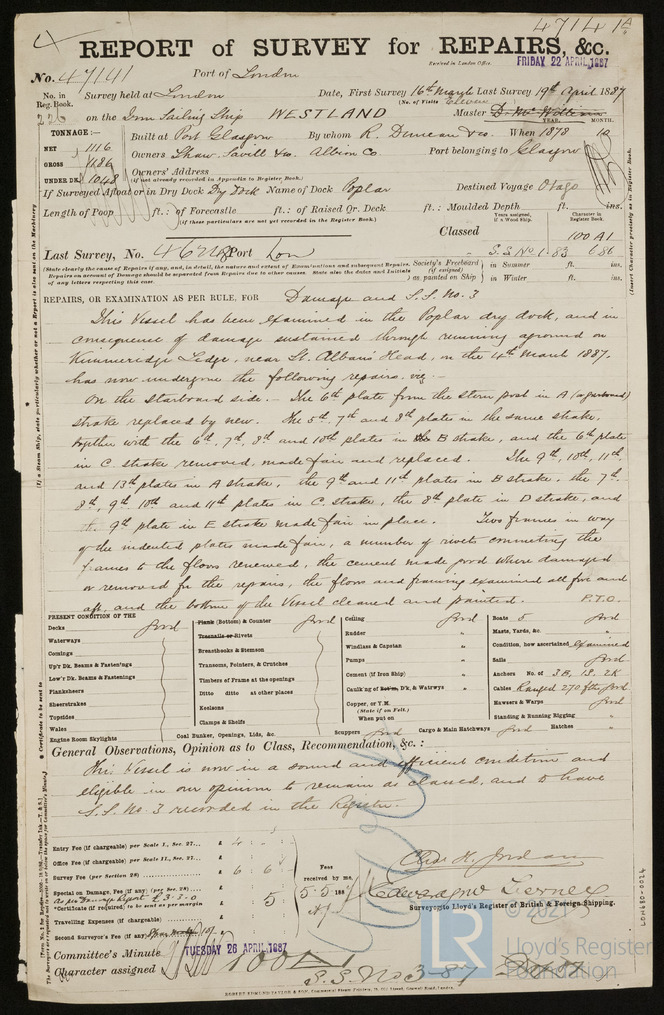 47141A
REPORT of SURVEY for REPAIRS, &c.
No. 47141 Port of London
Received in London Office FRIDAY 22 APRIL 1887
No. in Reg. Book. Survey held at London Date, First Survey 16th March Last Survey 19th April 1887
(No. of Visits Eleven
226 on the Iron Sailing Ship WESTLAND Master
TONNAGE:— Built at Port Glasgow By whom R. Duncan & Co. When 1878 YEAR. MONTH.
NET 1116
GROSS 1186 Owners Shaw, Savill & Co. Albion Co. Port belonging to Glasgow
UNDER DK. 1048 Owners' Address
(if not already recorded in Appendix to Register Book.)
If Surveyed Afloat or in Dry Dock Dry Dock Name of Dock Poplar Destined Voyage Otago
Length of Poop ft.: of Forecastle ft.: of Raised Qr. Deck ft.: Moulded Depth ft. ins.
(if these particulars are not yet recorded in the Register Book.)
Years assigned, if a Wood Ship. Character in Register Book.
Classed 100 A1
Last Survey, No. Port Lon S.S No 1-83 6 86
(State clearly the cause of Repairs if any, and, in detail, the nature and extent of Examinations and subsequent Repairs. Repairs on account of Damage should be separated from Repairs due to other causes. State also the dates and Initials of any letters respecting this case.
Society's Freeboard (if assigned) as painted on Ship in Summer ft. ins.
in Winter ft. ins.
REPAIRS, OR EXAMINATION AS PER RULE, FOR Damage and S.S. No. 3
This Vessel has been examined in the Poplar dry dock, and in
consequence of damage sustained through running aground on
Kimmeridge Ledge, near St. Alban's Head, on the 4th March 1887.
has now undergone the following repairs. viz:—
On the starboard side. — The 6th plate from the stern post in A (or garboard)
strake replaced by new. The 5th, 7th and 8th plates in the same strake,
together with the 6th, 7th, 8th and 10th plates in the B strake, and the 6th plate
in C. strake removed, made fair and replaced. The 9th, 10th, 11th,
and 13th plates in A strake, the 9th and 11th plates in B strake, the 7th,
8th, 9th, 10th and 11th plates in C. strake, the 8th plate in D strake, and
the 9th plate in E strake made fair in place. Two frames in way
of the indented plates made fair, a number of rivets connecting the
frames to the floors renewed, the cement made good where damaged
or removed for the repairs, the floors and framing examined all fore and
aft, and the bottom of the Vessel cleaned and painted. P.T.O.
PRESENT CONDITION OF THE
Decks good
Waterways
Comings
Up'r Dk. Beams & Fastenings
Low'r Dk. Beams & Fastenings
Planksheers
Sheerstrakes
Topsides
Wales
Engine Room Skylights
Plank (Bottom) & Counter good
Treenails or Rivets
Breasthooks & Stemson
Transoms, Pointers, & Crutches
Timbers of Frame at the openings
Ditto ditto at other places
Keelsons
Clamps & Shelfs
Coal Bunker, Openings, Lids, &c.
Ceiling good
Rudder "
Windlass & Capstan "
Pumps "
Cement (if Iron Ship) "
Caulk'ng of Bot'm, D'k, & Watrwys "
Copper, or Y.M.
(State if on Felt.)
When put on
Scuppers good Cargo & Main Hatchways good Hatches "
Boats 5 good
Masts, Yards, &c. "
Condition, how ascertained Examined
Sails good
Anchors No. of 3B, 1S, 2K
Cables Ranged 270 fths good
Hawsers & Warps good
Standing & Running Rigging "
General Observations, Opinion as to Class, Recommendation, &c.:
This Vessel is now in a sound and efficient condition and
eligible in our opinion to remain as classed, and to have
S.S. No. 3 recorded in the Register.
Entry Fee (if chargeable) per Scale I., Sec. 27... £ 4 : - :
Office Fee (if chargeable) per Scale II., Sec. 27... £
Survey Fee (per Section 28) £ 6 : 6 :
Special on Damage, Fee if any: (per Sec. 28)
as per Damage Report £3-3-0
Certificate (if required) to be sent as per margin £ 5
Travelling Expenses (if chargeable) £
Second Surveyor's Fee (if any)
Fees received by me,
5.5.1887
Edward W. Tierney
Surveyors to Lloyd's Register of British & Foreign Shipping.
Committee's Minute TUESDAY 26 APRIL 1887
Character assigned 100 A1
S.S. No 3-87
ROBERT EDMUND TAYLOR & SON
© 2021
LR
Lloyd's Register
Foundation
LON680-0026